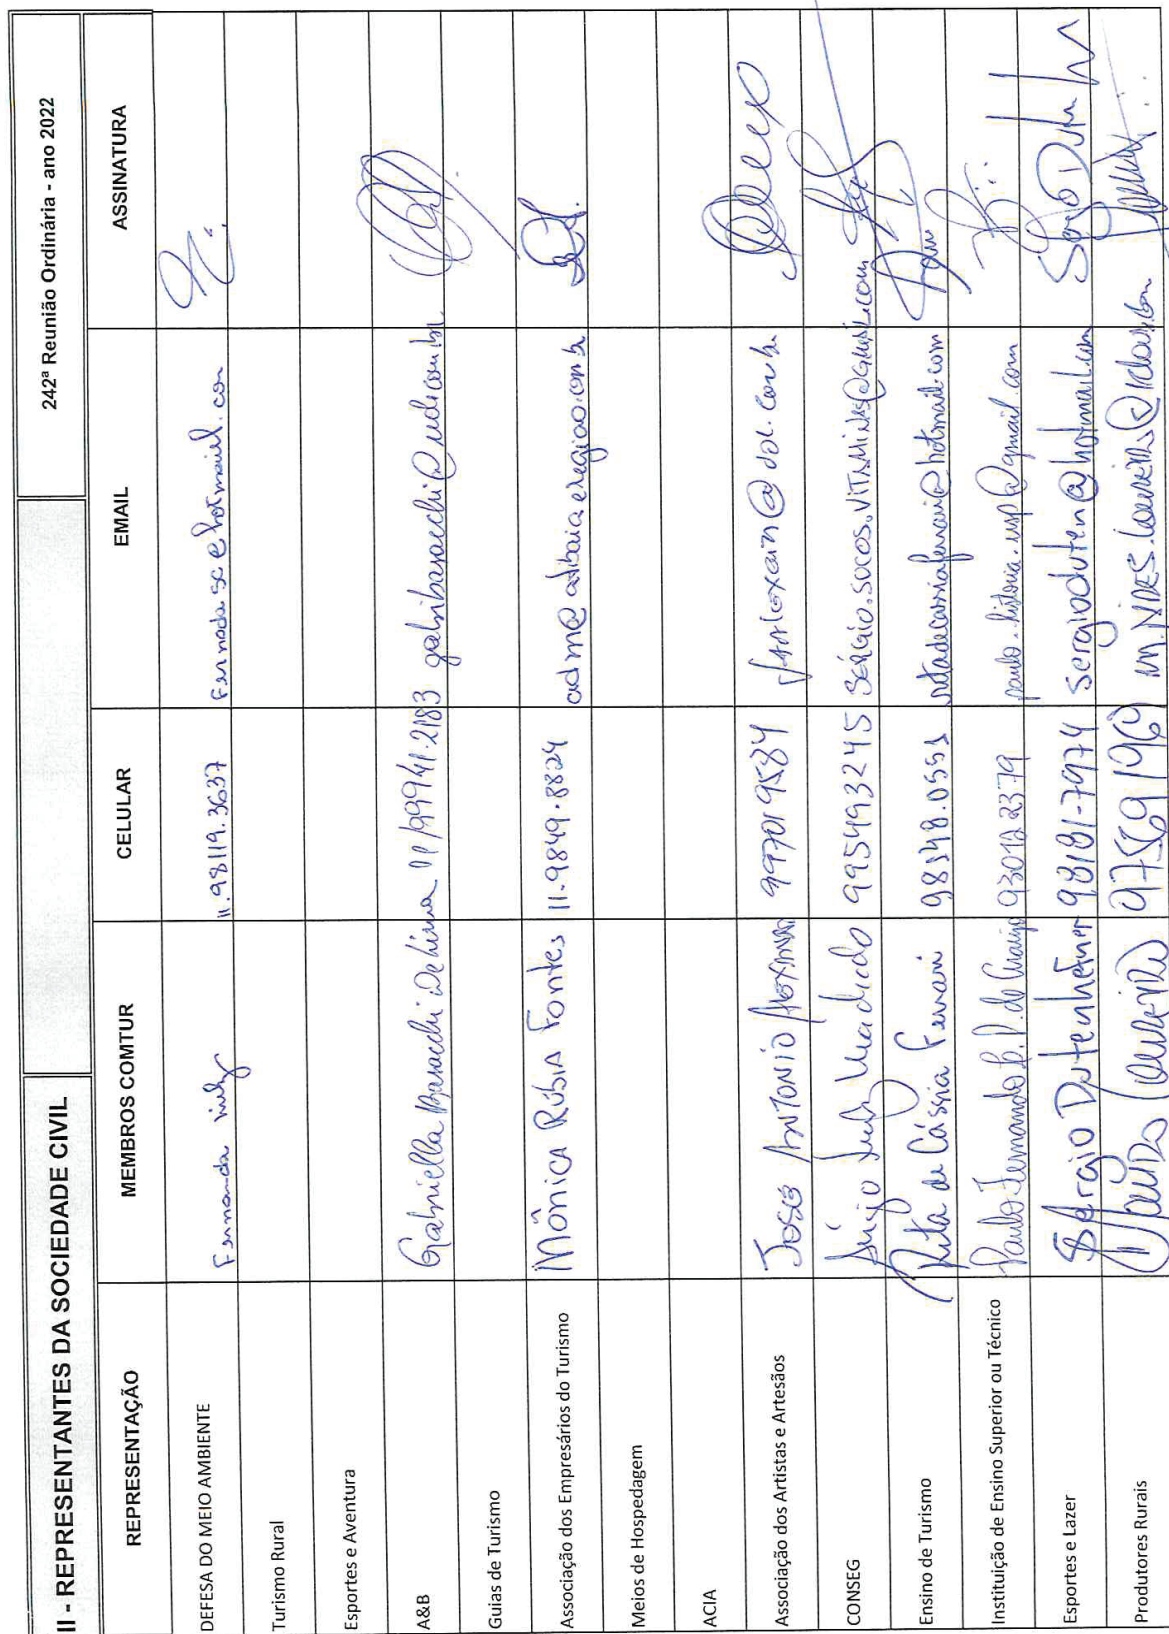 II - REPRESENTANTES DA SOCIEDADE CIVIL 242ª Reunião Ordinária - ano 2022
REPRESENTAÇÃO MEMBROS COMTUR CELULAR EMAIL ASSINATURA
DEFESA DO MEIO AMBIENTE Fernanda 11.98119.3637
Turismo Rural
Esportes e Aventura
A&B Gabriella Baracchi de Lima 11/99941-2183
Guias de Turismo
Associação dos Empresários do Turismo MÔNICA RÚBIA Fontes 11-9849-8824 adm@atibaiaeregiao.com.br
Meios de Hospedagem
ACIA
Associação dos Artistas e Artesãos JOSÉ ANTONIO 997019584
CONSEG Sérgio Machado 995493245 SÉRGIO.SUCOS.VITAMINAS@GMAIL.COM
Ensino de Turismo Rita de Cássia Ferrari 98548.0551 ritadecassiaferrari@hotmail.com
Instituição de Ensino Superior ou Técnico Paulo Fernando de Araújo 93012.2379 paulo.historia.usp@gmail.com
Esportes e Lazer Sérgio Dutenhefner 98181-7974 sergioduten@hotmail.com
Produtores Rurais